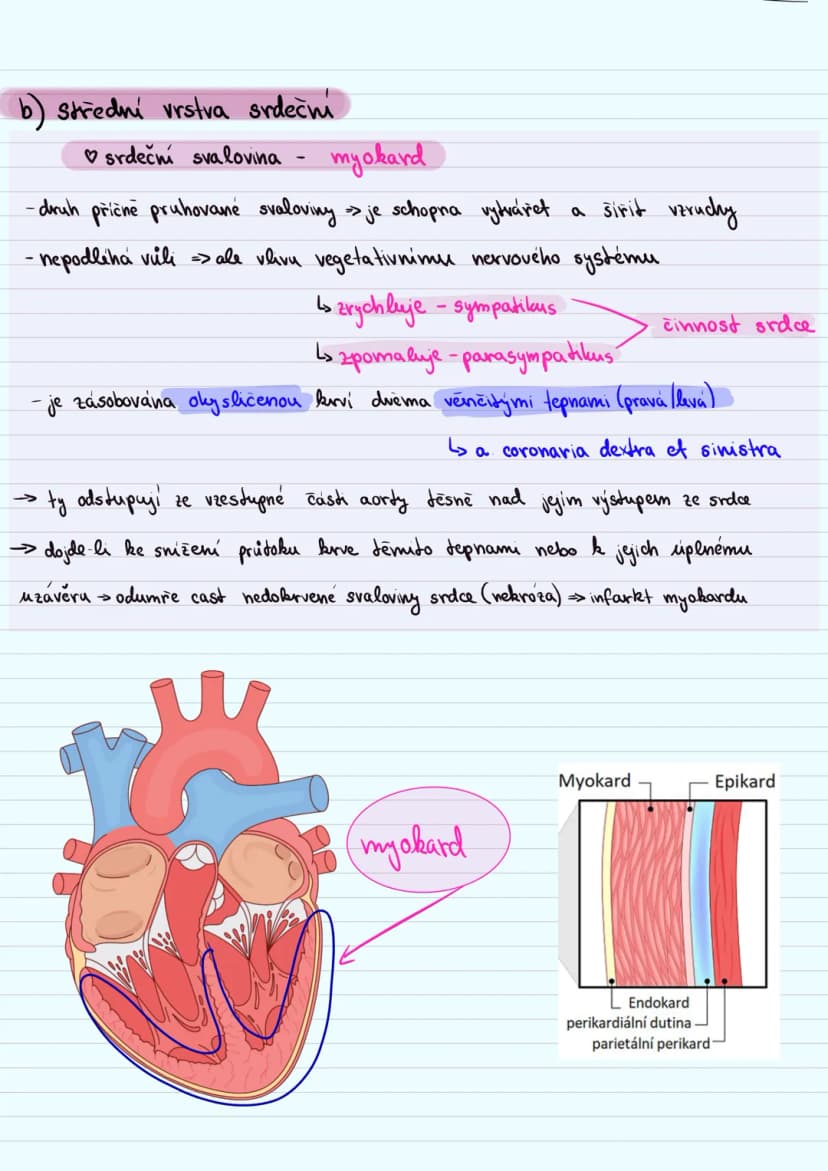 b) střední vrstva srdeční
♡ srdeční svalovina - myokard
- druh příčně pruhované svaloviny => je schopna vytvářet a šířit vzruchy
- nepodléhá vůli => ale vlivu vegetativnímu nervového systému
↳ zrychluje - sympatikus
činnost srdce
↳ zpomaluje - parasympatikus
- je zásobována okysličenou krví dvěma věnčitými tepnami (pravá/levá)
↳ a. coronaria dextra et sinistra
→ ty odstupují ze vzestupné části aorty těsně nad jejím výstupem ze srdce
→ dojde-li ke snížení průtoku krve těmito tepnami nebo k jejich úplnému
uzávěru → odumře část nedokrvené svaloviny srdce (nekróza) => infarkt myokardu
myokard
Myokard
Epikard
Endokard
perikardiální dutina
parietální perikard